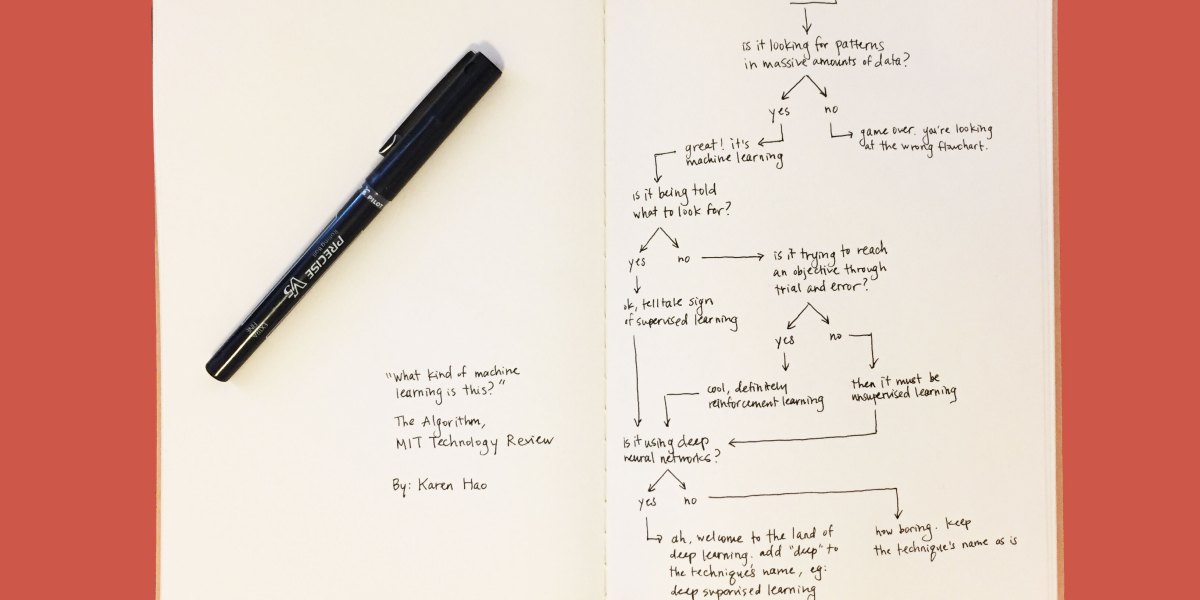 PILOT
PRECISE V5
Rolling Ball
EXTRA
FINE
"What kind of machine
learning is this?"
The Algorithm,
MIT Technology Review
By: Karen Hao
is it looking for patterns
in massive amounts of data?
yes
no
great! it's
machine learning
game over. you're looking
at the wrong flowchart.
is it being told
what to look for?
yes
no
is it trying to reach
an objective through
trial and error?
ok, telltale sign
of supervised learning
yes
no
cool, definitely
reinforcement learning
then it must be
unsupervised learning
is it using deep
neural networks?
yes
no
ah, welcome to the land of
deep learning. add "deep" to
the technique's name, eg:
deep supervised learning
how boring. keep
the technique's name as is